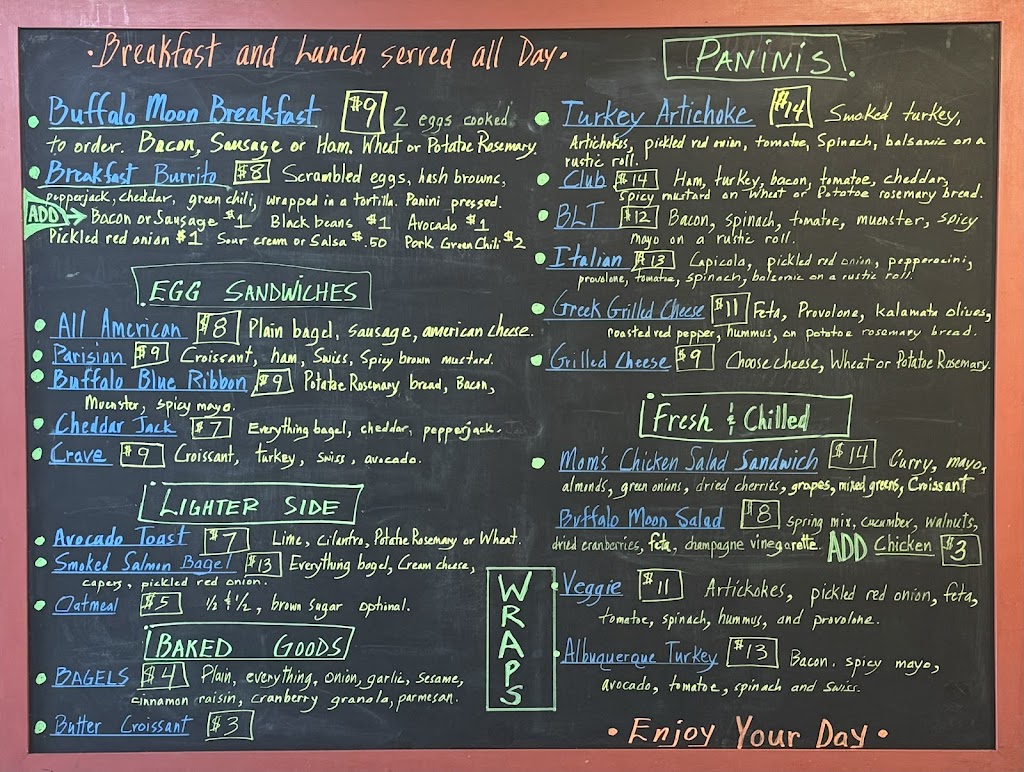 • Breakfast and Lunch served all Day •
• Buffalo Moon Breakfast $9 2 eggs cooked
to order. Bacon, Sausage or Ham. Wheat or Potatoe Rosemary.
• Breakfast Burrito $8 Scrambled eggs, hash browns,
pepperjack, cheddar, green chili, wrapped in a tortilla. Panini pressed.
ADD → Bacon or Sausage $1 Black beans $1 Avocado $1
Pickled red onion $1 Sour cream or Salsa $.50 Pork Green Chili $2
EGG SANDWICHES
• All American $8 Plain bagel, sausage, american cheese.
• Parisian $9 Croissant, ham, Swiss, Spicy brown mustard.
• Buffalo Blue Ribbon $9 Potatoe Rosemary bread, Bacon,
Muenster, spicy mayo.
• Cheddar Jack $7 Everything bagel, cheddar, pepperjack.
• Crave $9 Croissant, turkey, swiss, avocado.
LIGHTER SIDE
• Avocado Toast $7 Lime, cilantro, Potatoe Rosemary or Wheat.
• Smoked Salmon Bagel $13 Everything bagel, Cream cheese,
capers, pickled red onion.
• Oatmeal $5 ½ & ½, brown sugar optional.
BAKED GOODS
• BAGELS $4 Plain, everything, onion, garlic, sesame,
cinnamon raisin, cranberry granola, parmesan.
• Butter Croissant $3
PANINIS
• Turkey Artichoke $14 Smoked turkey,
Artichokes, pickled red onion, tomatoe, Spinach, balsamic on a
rustic roll.
• Club $14 Ham, turkey, bacon, tomatoe, cheddar,
spicy mustard on Wheat or Potatoe rosemary bread.
• BLT $12 Bacon, spinach, tomatoe, muenster, spicy
mayo on a rustic roll.
• Italian $13 Capicola, pickled red onion, pepperocini,
provolone, tomatoe, spinach, balsamic on a rustic roll
• Greek Grilled Cheese $11 Feta, Provolone, kalamata olives,
roasted red pepper, hummus, on potatoe rosemary bread.
• Grilled Cheese $9 Choose cheese, Wheat or Potatoe Rosemary.
Fresh & Chilled
• Mom's Chicken Salad Sandwich $14 Curry, mayo,
almonds, green onions, dried cherries, grapes, mixed greens, Croissant
Buffalo Moon Salad $8 spring mix, cucumber, walnuts,
dried cranberries, feta, champagne vinegarette. ADD Chicken $3
WRAPS
• Veggie $11 Artickokes, pickled red onion, feta,
tomatoe, spinach, hummus, and provolone.
• Albuquerque Turkey $13 Bacon. spicy mayo,
avocado, tomatoe, spinach and Swiss.
• Enjoy Your Day •